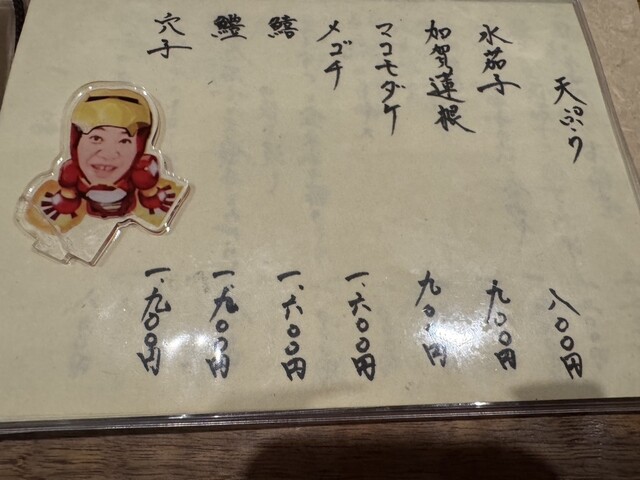 天ぷら
水茄子 八〇〇円
加賀蓮根 九〇〇円
マコモダケ 九〇〇円
メゴチ 一、六〇〇円
鱚 一、六〇〇円
鱧 一、九〇〇円
穴子 一、九〇〇円